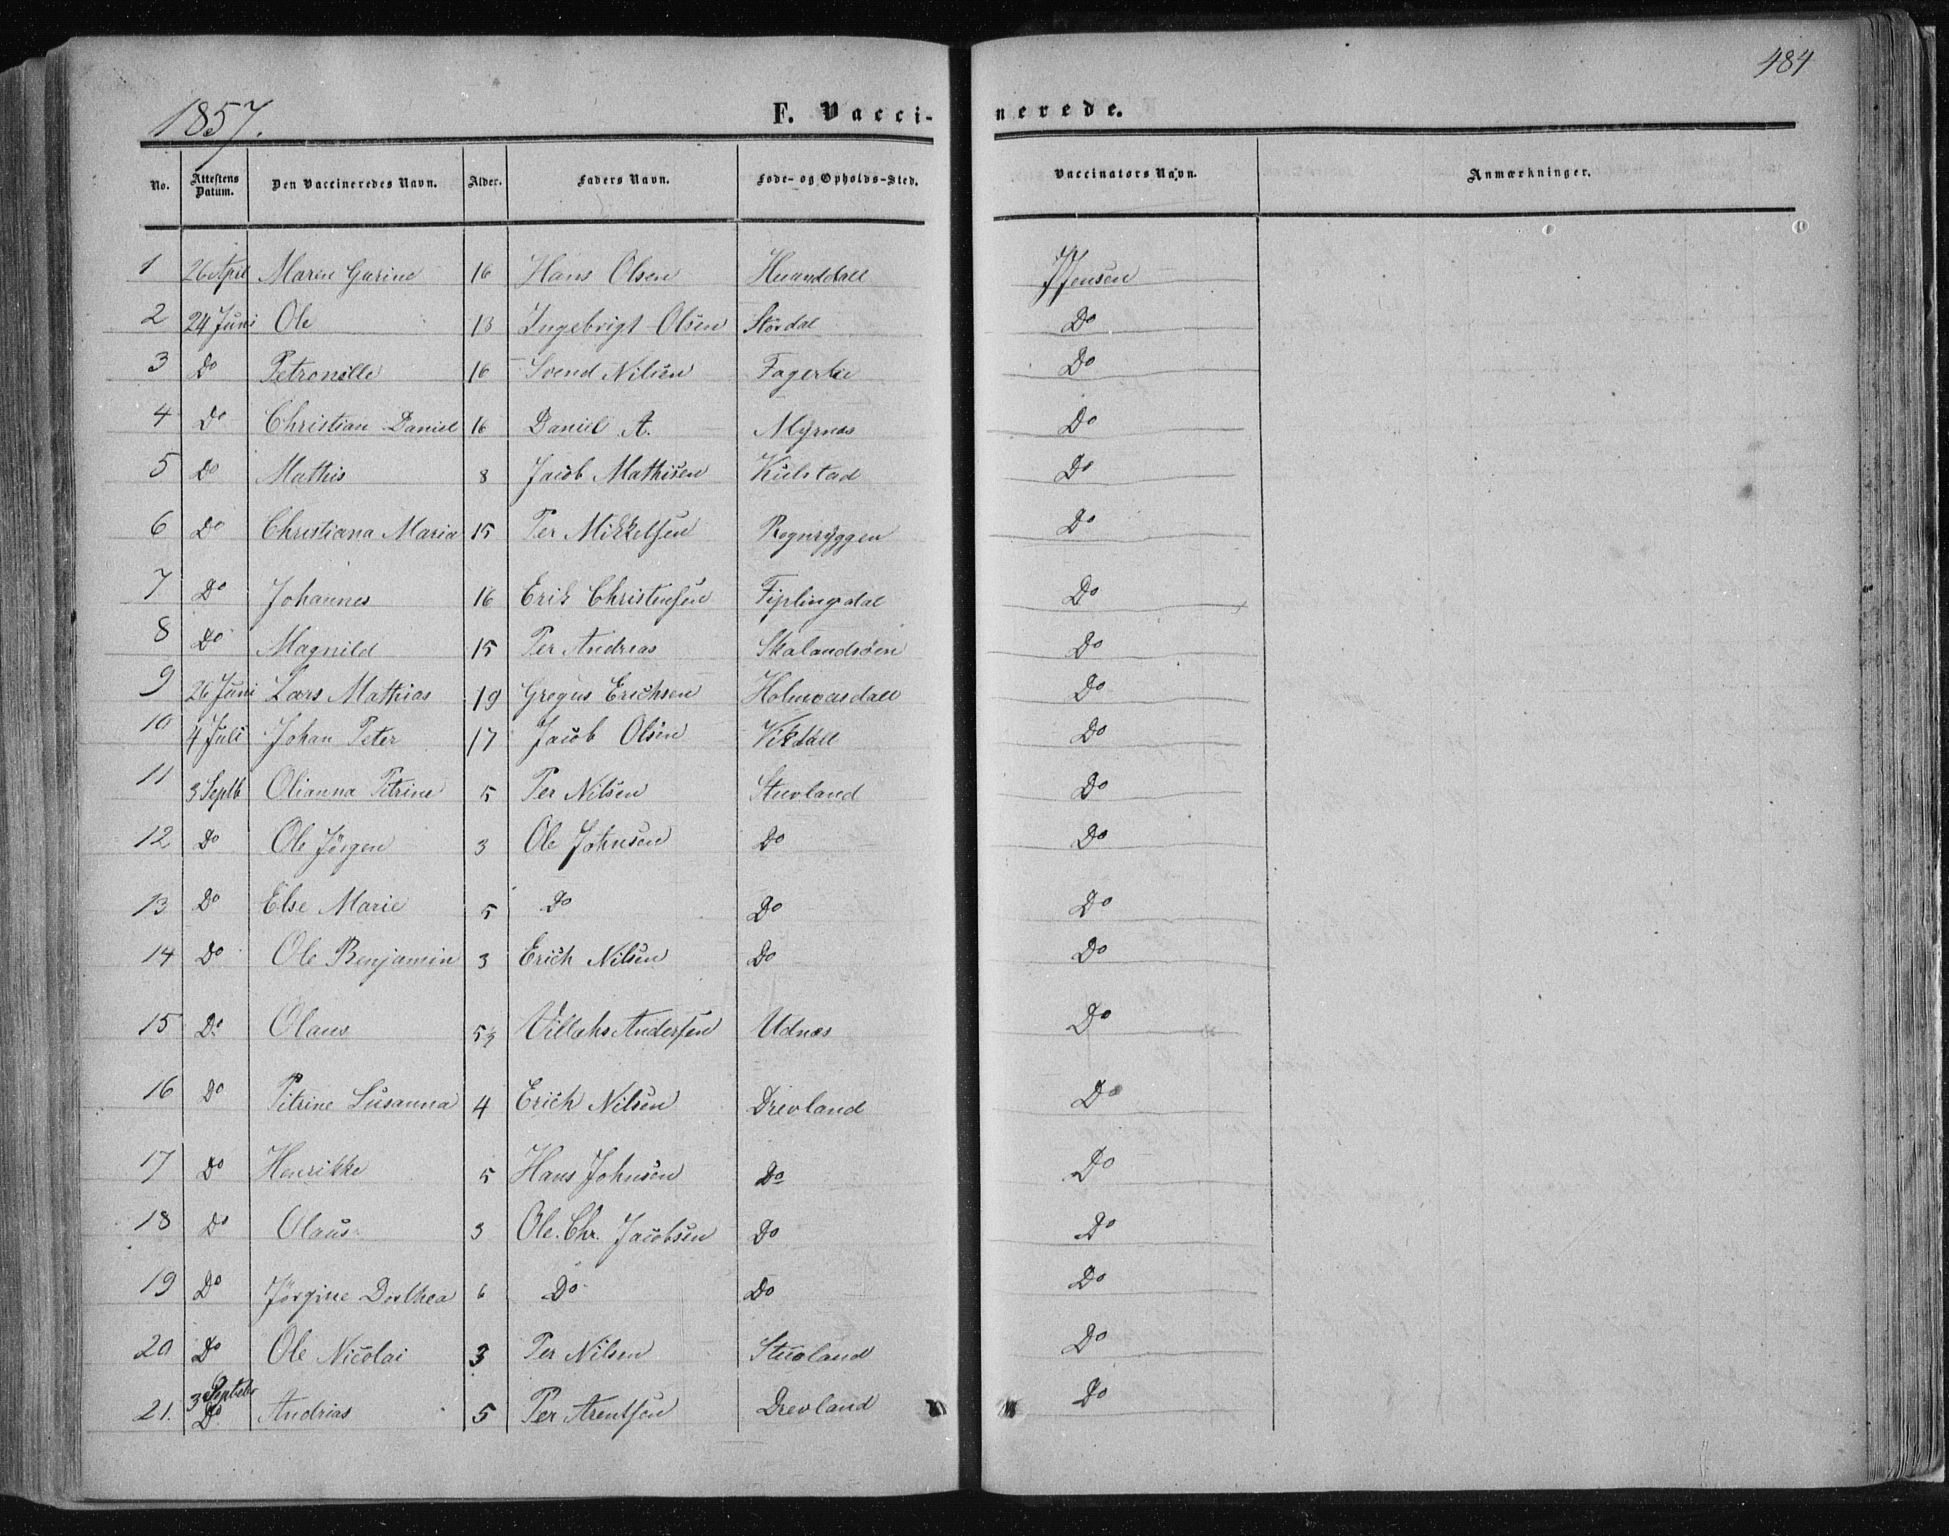 484
1857.
F. Vaccinerede.
No. Attestens Datum. Den Vaccineredes Navn. Alder. Faders Navn. Føde- og Opholds-Sted. Vaccinators Navn. Anmærkninger.
1 26 April Maren Gurine 16 Hans Olsen JJensen
2 24 Juni Ole 13 Ingebrigt Olsen Stordal Do
3 Do Petronelle 16 Svend Nilsen Fagerlie Do
4 Do Christian Daniel 16 Daniel A. Myrnæs Do
5 Do Mathis 8 Jacob Mathisen Kulstad Do
6 Do Christiana Maria 15 Per Mikkelsen Rognryggen Do
7 Do Johannes 16 Erik Christensen Fiplingdal Do
8 Do Magnild 15 Per Andreas Skalandsøen Do
9 26 Juni Lars Mathias 19 Gregus Erichsen Holmvasdall Do
10 4 Juli Johan Peter 17 Jacob Olsen Vikdall Do
11 3 Septb Olianna Petrine 5 Per Nilsen Stuvland Do
12 Do Ole Jörgen 3 Ole Johnsen Do Do
13 Do Else Marie 5 Do Do Do
14 Do Ole Benjamin 3 Erich Nilsen Do Do
15 Do Olaus Andersen Udnæs Do
16 Do Petrine Susanna 4 Erich Nilsen Drevland Do
17 Do Henrikke 5 Hans Johnsen Do Do
18 Do Olaus 3 Ole Chr. Jacobsen Do Do
19 Do Jørgine Dorthea 6 Do Do Do
20 Do Ole Nicolai 3 Per Nilsen Stuvland Do
21. 3 Septebr Do Andrias 5 Per Arentsen Drevland Do